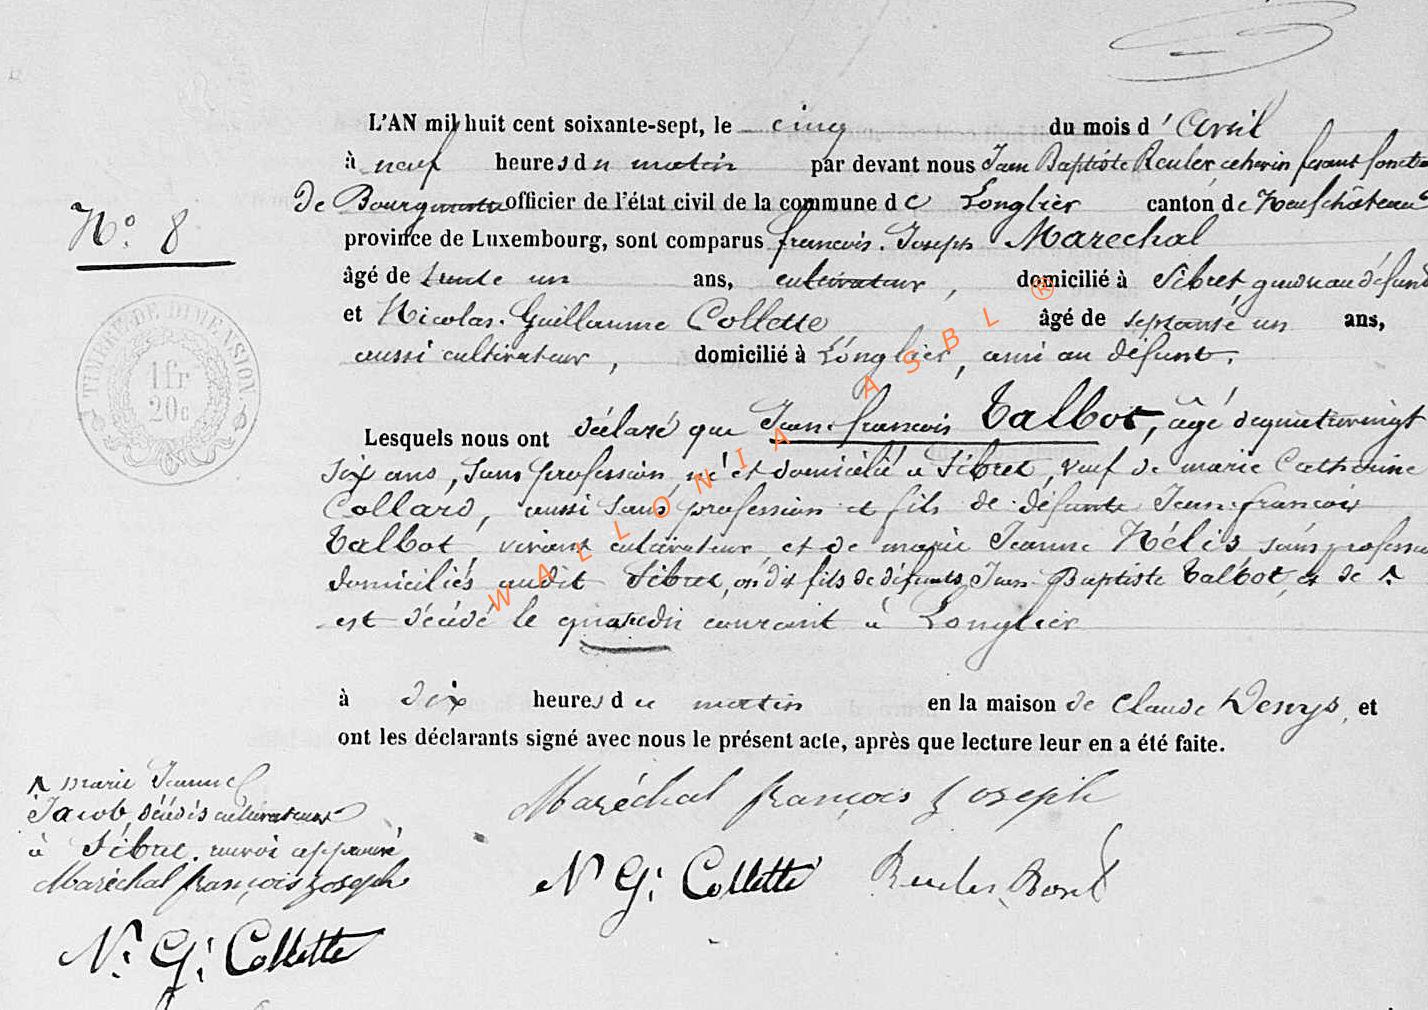 L'AN mil huit cent soixante-sept, le cinq du mois d'Avril
à neuf heures du matin par devant nous Jean Baptiste Reuler, échevin fesant fonction
de Bourgmestre officier de l'état civil de la commune de Longlier canton de Neufchâteau
N.º 8
province de Luxembourg, sont comparus françois Joseph Marechal
âgé de trente un ans, cultivateur, domicilié à Sibret,
et Nicolas Guillaume Collette âgé de septante un ans,
aussi cultivateur, domicilié à Longlier, ami au défunt.
TIMBRE DE DIMENSION.
1fr
20c
Lesquels nous ont déclaré que Jean françois Talbot, âgé de quatrevingt
six ans, sans profession, né et domicilié à Sibret, veuf de marie Catherine
Collard, aussi sans profession et fils de défunts Jean françois
Talbot vivant cultivateur et de marie Jeanne Hélis sans profession
domiciliés audit Sibret, on dit fils de défunts Jean Baptiste Talbot, et de
est décédé le quatre du courant à Longlier
à dix heures du matin en la maison de Claude Denys, et
ont les déclarants signé avec nous le présent acte, après que lecture leur en a été faite.
marie Jeanne
Jacob, décédés cultivateurs
à Sibret. renvoi approuvé
Maréchal françois Joseph
N. G. Collette
Maréchal françois Joseph
N G. Collette
WALLONIA ASBL ®